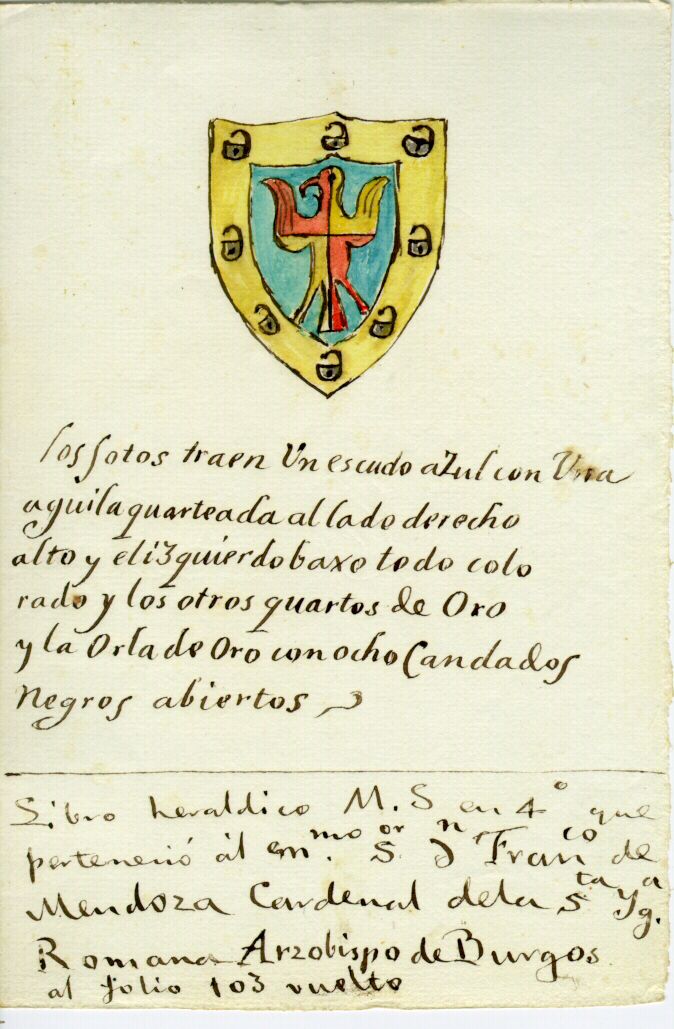 los sotos traen Un escudo aZul con Una
aguila quarteada al lado derecho
alto y el i3quierdo baxo todo colo
rado y los otros quartos de Oro
y la Orla de Oro con ocho Candados
Negros abiertos
Libro heraldico M. S en 4º que
perteneció ál emmo. Sor Dn Franco de
Mendoza Cardenal dela Sta Yga.
Romana Arzobispo de Burgos
al folio 103 vuelto